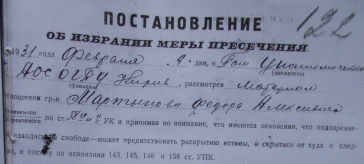 122
ПОСТАНОВЛЕНИЕ
ОБ ИЗБРАНИИ МЕРЫ ПРЕСЕЧЕНИЯ
1931 Февраля 9 дня, я Пом Уполномоченного
(должность)
ПОС ОГПУ рассмотрев Материал
(фамилия)
ношении гр-на Мартынова Федора Алексеевича
по ст. УК и принимая во внимание, что имеются основания, что подозрева-
находясь на свободе— может препятствовать раскрытию истины, и скрыться от суда и след-
а, а посему на основании 143, 145, 146 и 158 ст. УПК.